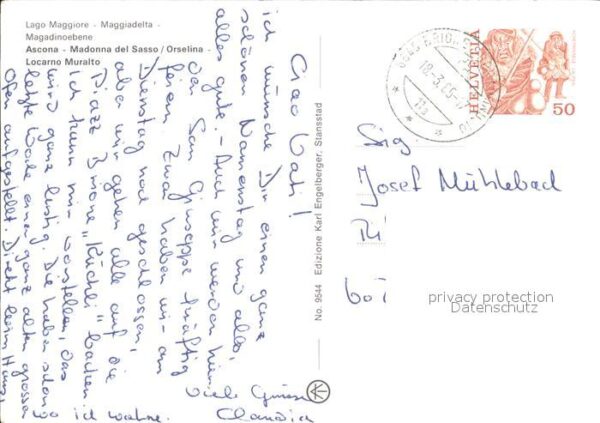 Lago Maggiore - Maggiadelta -
Magadinoebene
Ascona - Madonna del Sasso / Orselina -
Locarno Muralto
Ciao Vati!
ich wünsche Dir einen ganz
schönen Namenstag und alles,
alles gute. - Auch wir werden hier
den San Giuseppe kräftig
feiern. Zwar haben wir am
Dienstag noch geschlossen,
aber wir gehen alle auf die
Piazza "Küchli" backen.
Ich kann mir vorstellen, das
wird ganz lustig. Die haben schon
letzte Woche einen ganz alten grossen
Ofen aufgestellt. Direkt beim Haus
wo ich wohne.
Viele Grüsse
Claudia
No. 9544 Edizione Karl Engelberger, Stansstad
HELVETIA
50
18.-3.85
Sig
Josef Mühlebach
privacy protection
Datenschutz